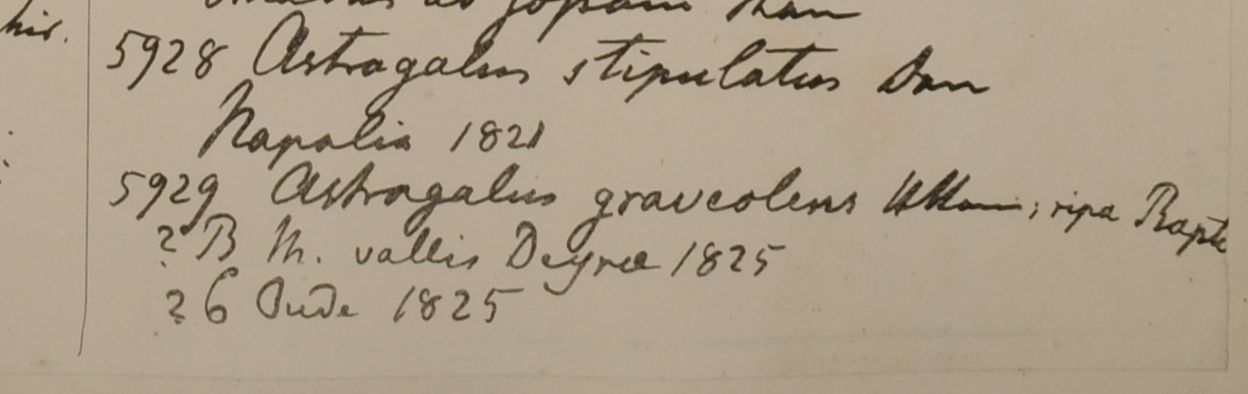 hir.
5928 Astragalus stipulatus Don
Napalia 1821
5929 Astragalus graveolens ; ripa Rapt
? B M. vallis Deyræ 1825
? 6 Oude 1825